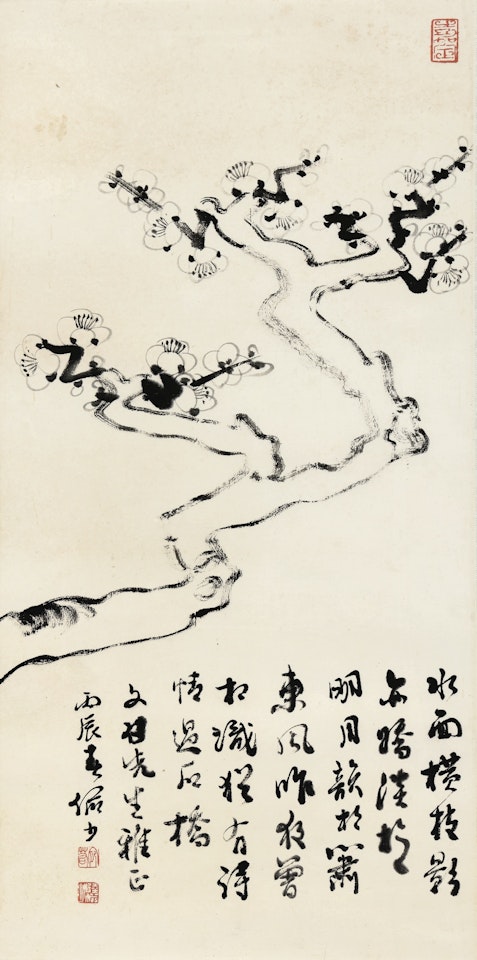 水面橫枝影
亦嬌淡於
明月韻於簫
東風昨夜曾
相識猶有詩
情過石橋
文先生雅正
丙辰春